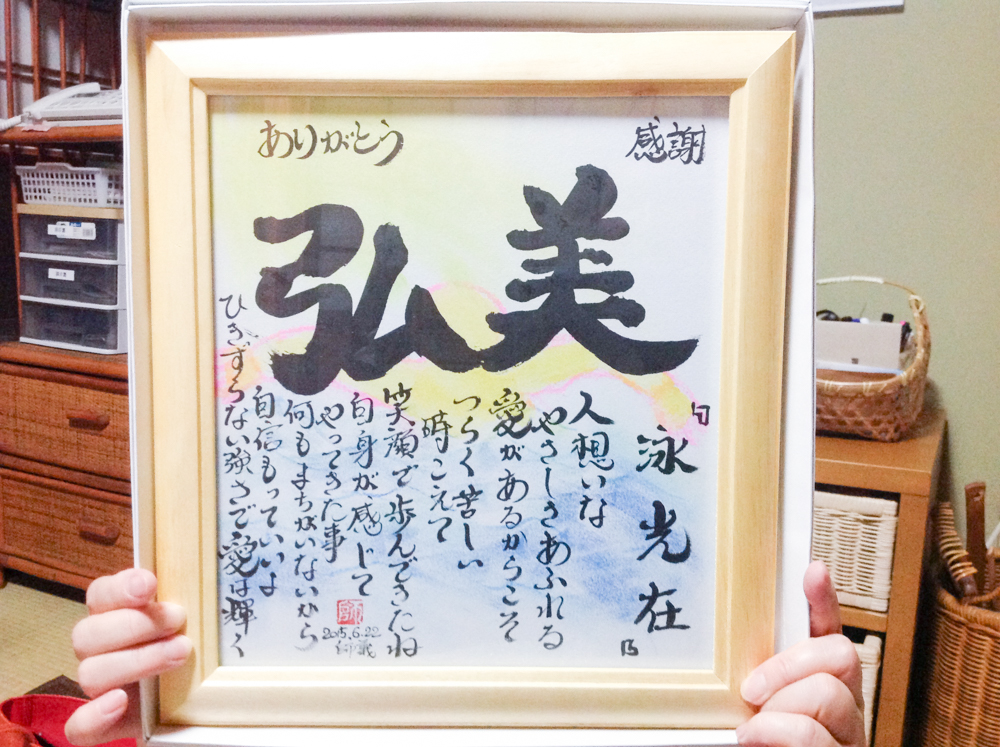 ありがとう
感謝
弘美
「泳光在」
人想いな
やさしさあふれる
愛があるからこそ
つらく苦しい
時こえて
笑顔で歩んできたね
自身が感じて
やってきた事
何もまちがいないから
自信もっていいよ
ひきずらない強さで愛は輝く
2015.6.22